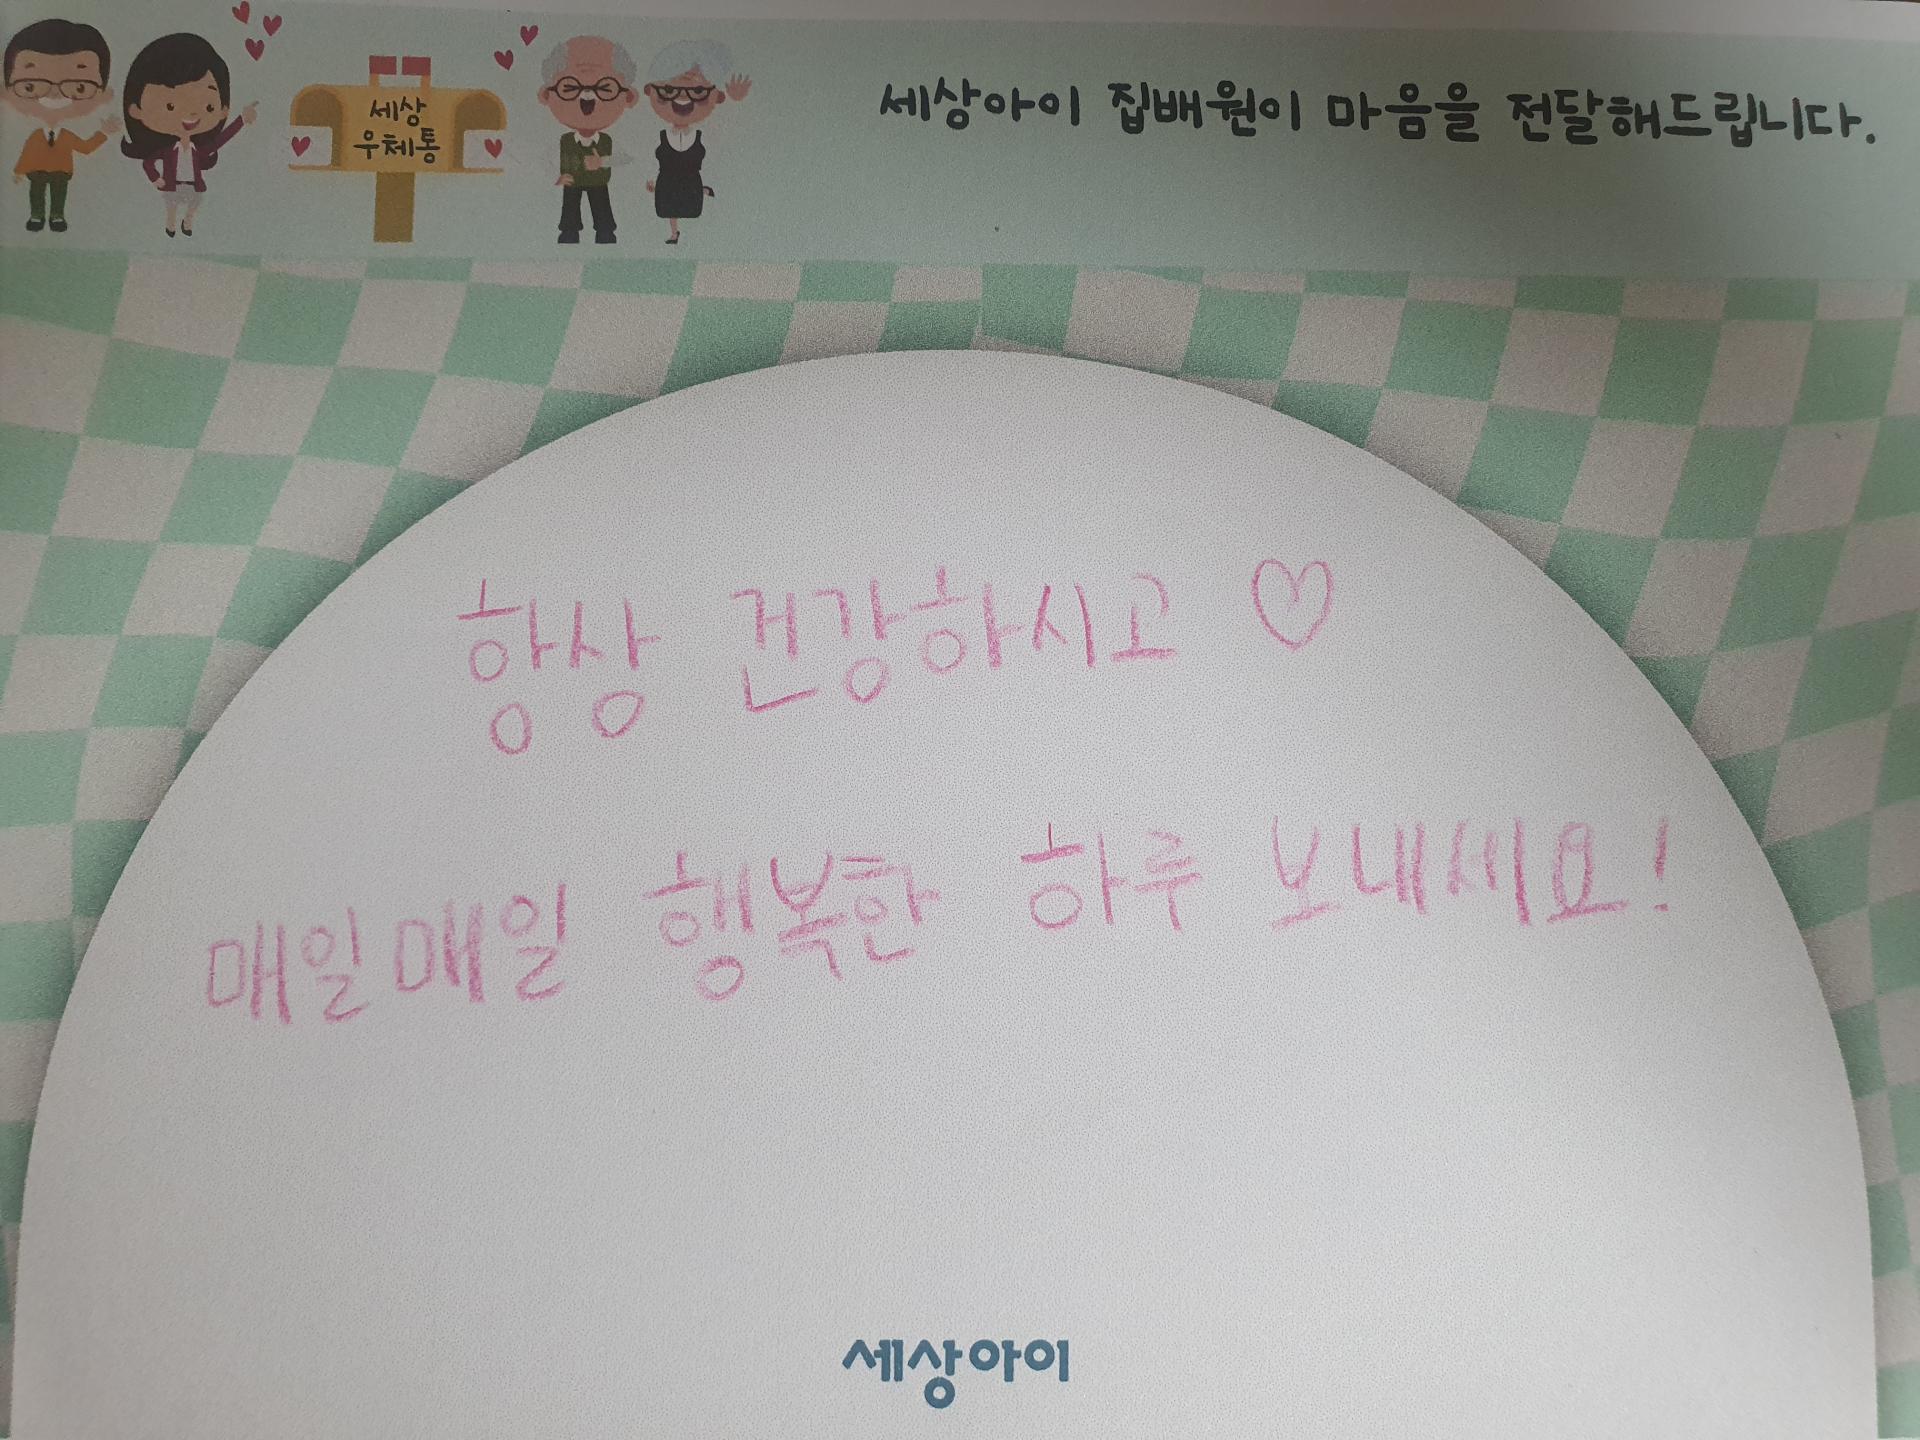 세상아이 집배원이 마음을 전달해드립니다.
세상
우체통
항상 건강하시고 ♡
매일매일 행복한 하루 보내세요!
세상아이